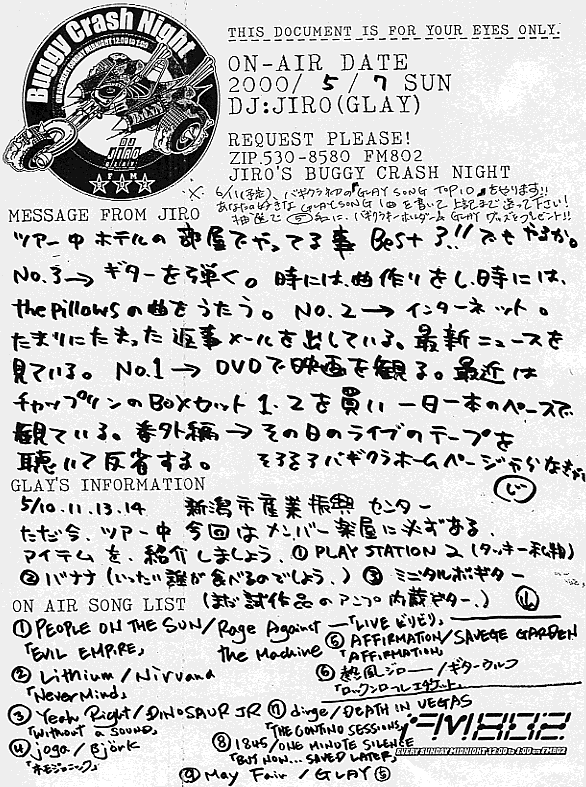 Buggy Crash Night
DJ
JIRO
GLAY
THIS DOCUMENT IS FOR YOUR EYES ONLY.
ON-AIR DATE
2000/ 5/ 7 SUN
DJ:JIRO(GLAY)
REQUEST PLEASE!
ZIP.530-8580 FM802
JIRO'S BUGGY CRASH NIGHT
MESSAGE FROM JIRO
ツアー中ホテルの部屋でやってる事 Best 3!!でもやるか。
No.3→ ギターを弾く。時には、曲作りをし、時には、
the pillowsの曲をうたう。 No.2→インターネット。
たまりにたまった返事メールを出している。最新ニュースを
見ている。 No.1→ DVDで映画を観る。最近は
チャップリンのBoxセット 1.2を買い一日一本のペースで
観ている。番外編→その日のライブのテープを
聴いて反省する。 そろそろバギクラホームページ
GLAY'S INFORMATION
5/10.11.13.14 新潟市産業振興センター
ただ今、ツアー中 今回はメンバー楽屋に必ずある、
アイテムを、紹介しましょう。① PLAY STATION 2 (タッキー私物)
② バナナ (いったい誰が食べるのでしょう。) ③ ミニタルボギター
(まだ試作品のアンプ内蔵ギター。)
ON AIR SONG LIST
① PEOPLE ON THE SUN / Rage Against the Machine
「EVIL EMPIRE」
② Lithium / Nirvana
「NeverMind」
③ Yeah Right / DINOSAUR JR
「without a SOUND」
④ joga / Björk
「ホモジェニック」
「LIVE ビリビリ」
⑤ AFFIRMATION/SAVEGE GARDEN
「AFFIRMATION」
⑥ 熱風ジロー / ギターウルフ
「ロックンロールエチケット」
⑦ dirge/DEATH IN VEGAS
「THE CONTINO SESSIONS」
⑧ 1845/ONE MINUTE SILENCE
「BUY NOW... SAVED LATER」
⑨ May Fair / GLAY
FM802
EVERY SUNDAY MIDNIGHT 12:00 to 1:00 on FM802